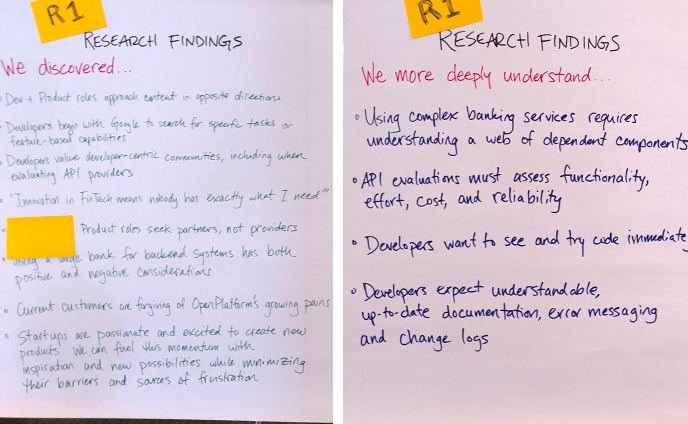 R1
RESEARCH FINDINGS
We discovered...
• Dev + Product roles approach content in opposite directions
• Developers begin with Google to search for specific tasks or
feature-based capabilities
• Developers value developer-centric communities, including when
evaluating API providers
• "Innovation in FinTech means nobody has exactly what I need"
• Product roles seek partners, not providers
• Using a large bank for backend systems has both
positive and negative considerations
• Current customers are forgiving of OpenPlatform's growing pains
• Startups are passionate and excited to create new
products. We can fuel this momentum with
inspiration and new possibilities while minimizing
their barriers and sources of frustration
R1
RESEARCH FINDINGS
We more deeply understand...
• Using complex banking services requires
understanding a web of dependent components
• API evaluations must assess functionality,
effort, cost, and reliability
• Developers want to see and try code immediate
• Developers expect understandable,
up-to-date documentation, error messaging
and change logs